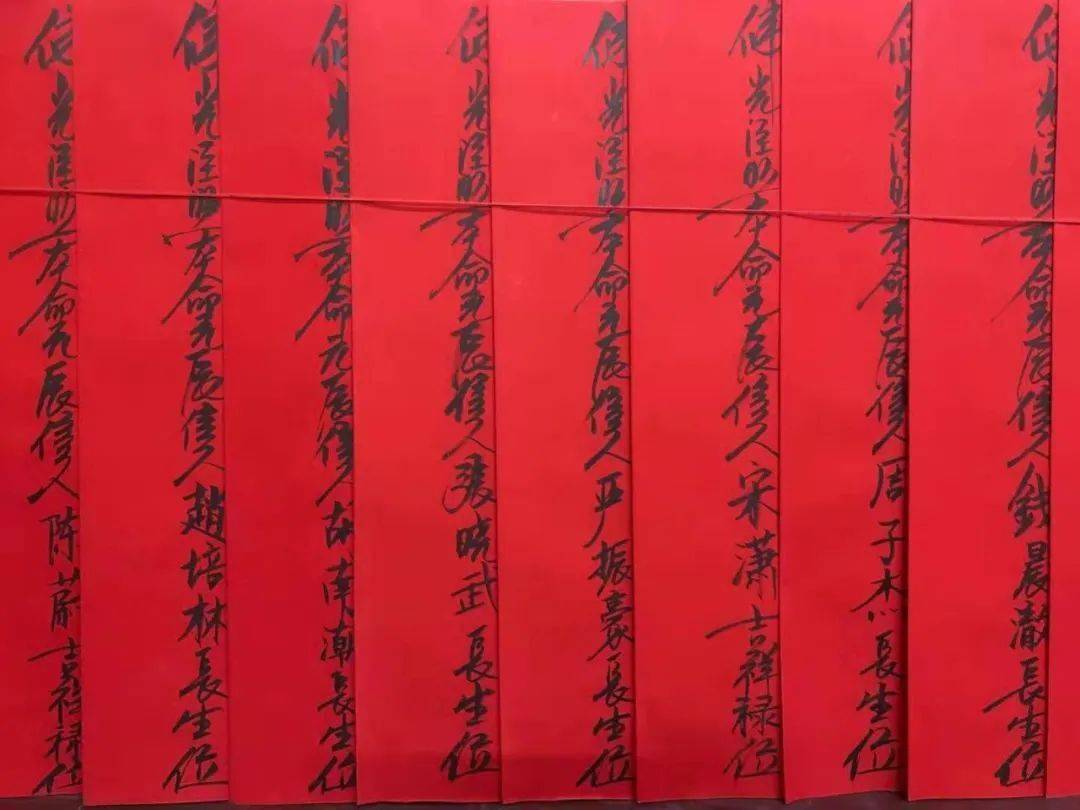 佛光注照本命元辰信人钱晨澈長生位
佛光注照本命元辰信人周子杰長生位
佛光注照本命元辰信人宋潇吉祥禄位
佛光注照本命元辰信人严振豪長生位
佛光注照本命元辰信人晓武長生位
佛光注照本命元辰信人南潮長生位
佛光注照本命元辰信人趙培林長生位
佛光注照本命元辰信人陈蔚吉祥禄位